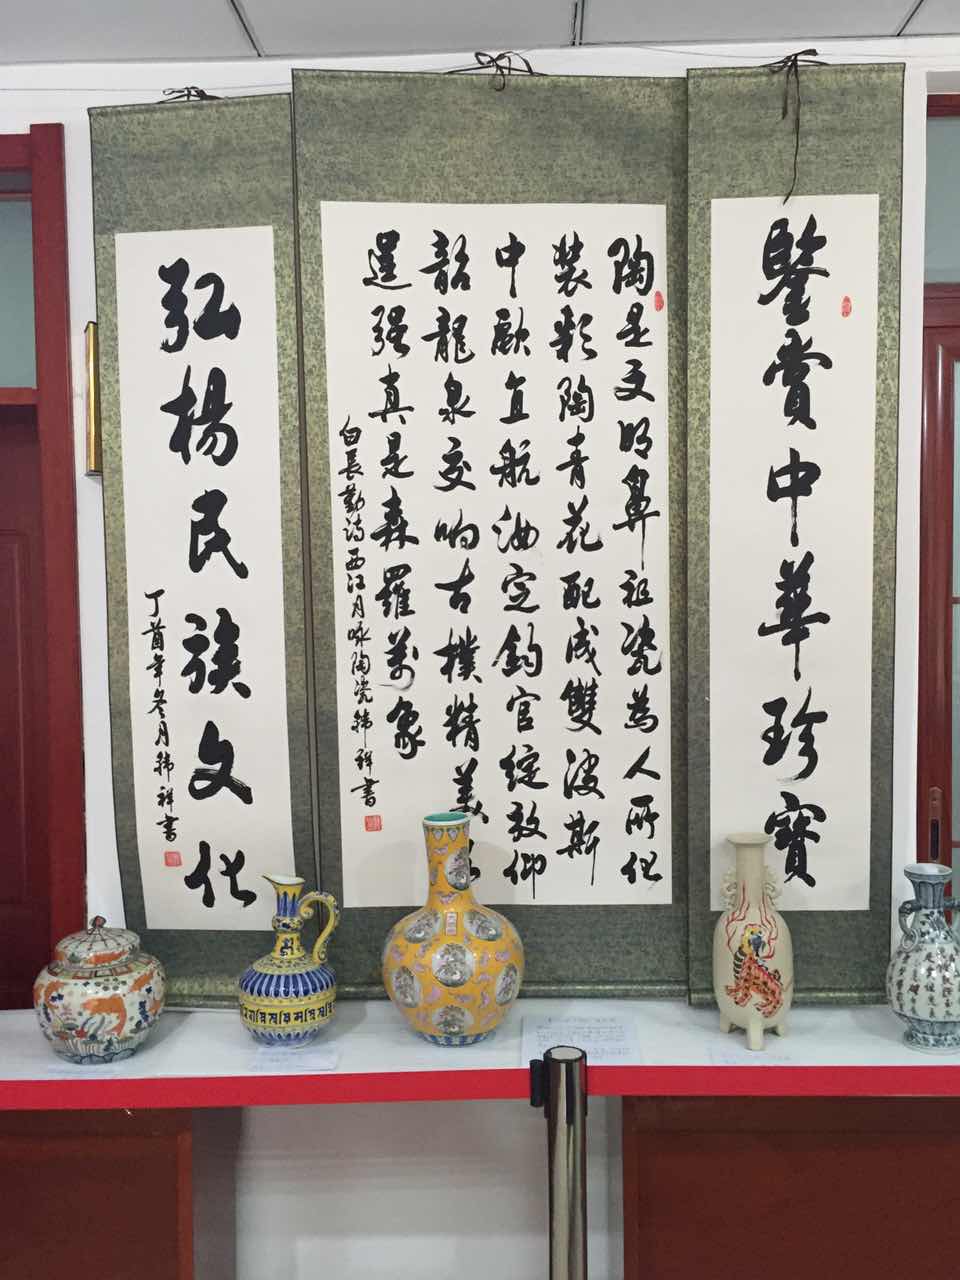 鑒賞中華珍寶
陶是文明鼻祖瓷為人所化
裝彩陶青花配成雙斯
中歐直航汝定鈞官綻放仰
韶龍泉交响古樸精美
逞强真是森羅萬象
白長勤詩西江月咏陶瓷祥書
弘楊民族文化
丁酉年冬月祥書